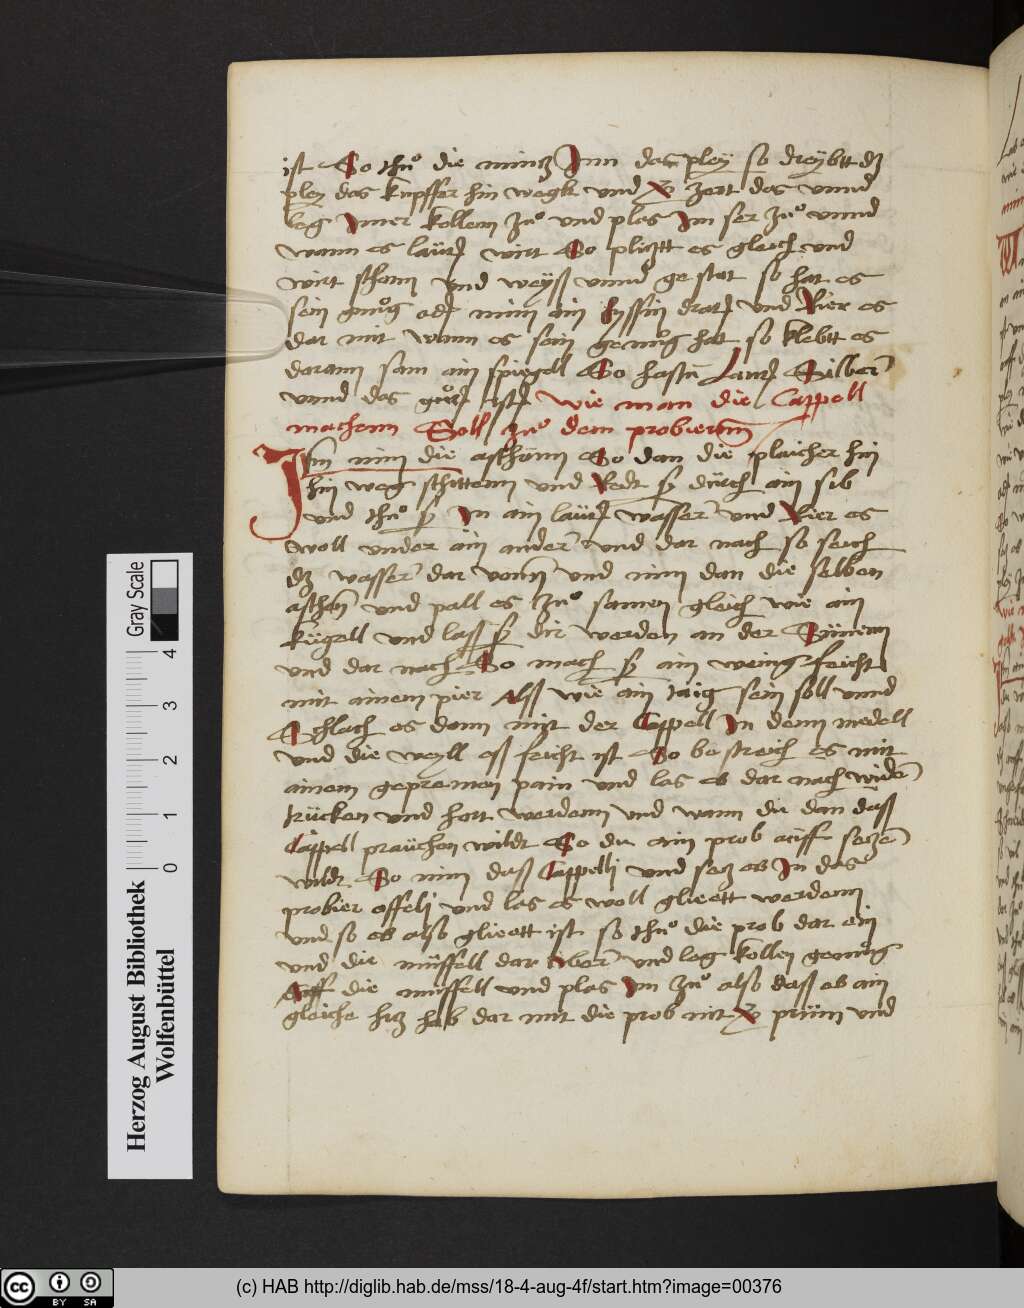 ist So thuͦ die mintz Inn das pley so dreybtt dz
pley das kupffer hin wegk und zert das unnd
leg Imer kollenn zuͦ und plas Im ser zuͦ unnd
wann es lautter wirt So plicktt es gleich und
wirt schonn und weyß unnd gestat so hat es
sein genuͦg oder nim ain Eyssin dratt und Rier es
dar mit wann es sein genuͦg hat so klebtt es
darann sam ain spiegell So hastu Lautter Silber
unnd das guͦtt ist wie man die Cappell
machenn Soll zuͦ dem probierenn
Item nim die aschenn So dan die plaicher hin
hin weg schittenn und Redt durch ain sib
und thuͦ In ain lautter wasser und Rier es
woll under ain ander und dar nach so seich
dz wasser dar vonn und nim dan die selben
aschenn und pall es zuͦ samen gleich wie ain
kugell und laß dir werden an der Sunnen
und dar nach So mach ain wenig feicht
mit ainem pier Alß wie ain taig sein soll unnd
Schlach es dann mit der Cappell In denn modell
und die weyll eß feicht ist So bestreich es mit
ainem geprenten pain und las es dar nach wider
trucken und hert werdenn und wann du dan daß
Cappell prauchen wildt So du ain prob auff setzen
wildt So nim daß Cappelli und setz es In das
probier offeli und las es woll gliett werdenn
und so es also gliett ist so thuͦ die prob dar ein
und die muffell dar uber und leg kollen genuͦg
Auff die muffell und plas Im zuͦ also daß es ain
gleiche hitz hab dar mit die prob nit prinn und
Gray Scale
4
3
2
1
0
Herzog August Bibliothek
Wolfenbüttel
cc BY SA
(c) HAB http://diglib.hab.de/mss/18-4-aug-4f/start.htm?image=00376